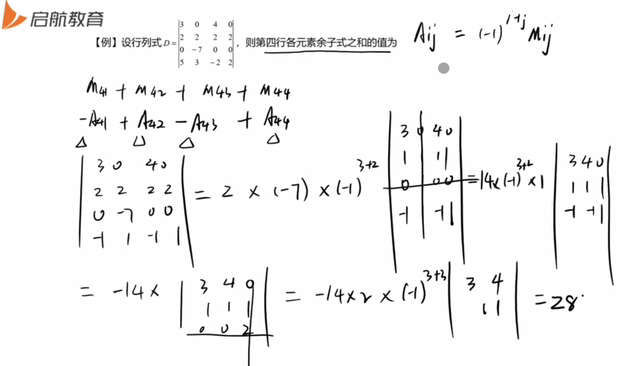 启航教育
【例】设行列式D= |3 0 4 0; 2 2 2 2; 0 -7 0 0; 5 3 -2 2|, 则第四行各元素余子式之和的值为
Aij = (-1)^i+j Mij
M41 + M42 + M43 + M44
-A41 + A42 - A43 + A44
|3 0 4 0; 2 2 2 2; 0 -7 0 0; -1 1 -1 1| = 2 × (-7) × (-1)^3+2 |3 0 4 0; 1 1 1 1; 0 0 0; -1 -1 1| = 14 × (-1)^3+2 × 1 |3 4 0; 1 1 1; -1 -1 1|
= -14 × |3 4 0; 1 1 1; 0 0 2| = -14 × 2 × (-1)^3+3 |3 4; 1 1| = 28